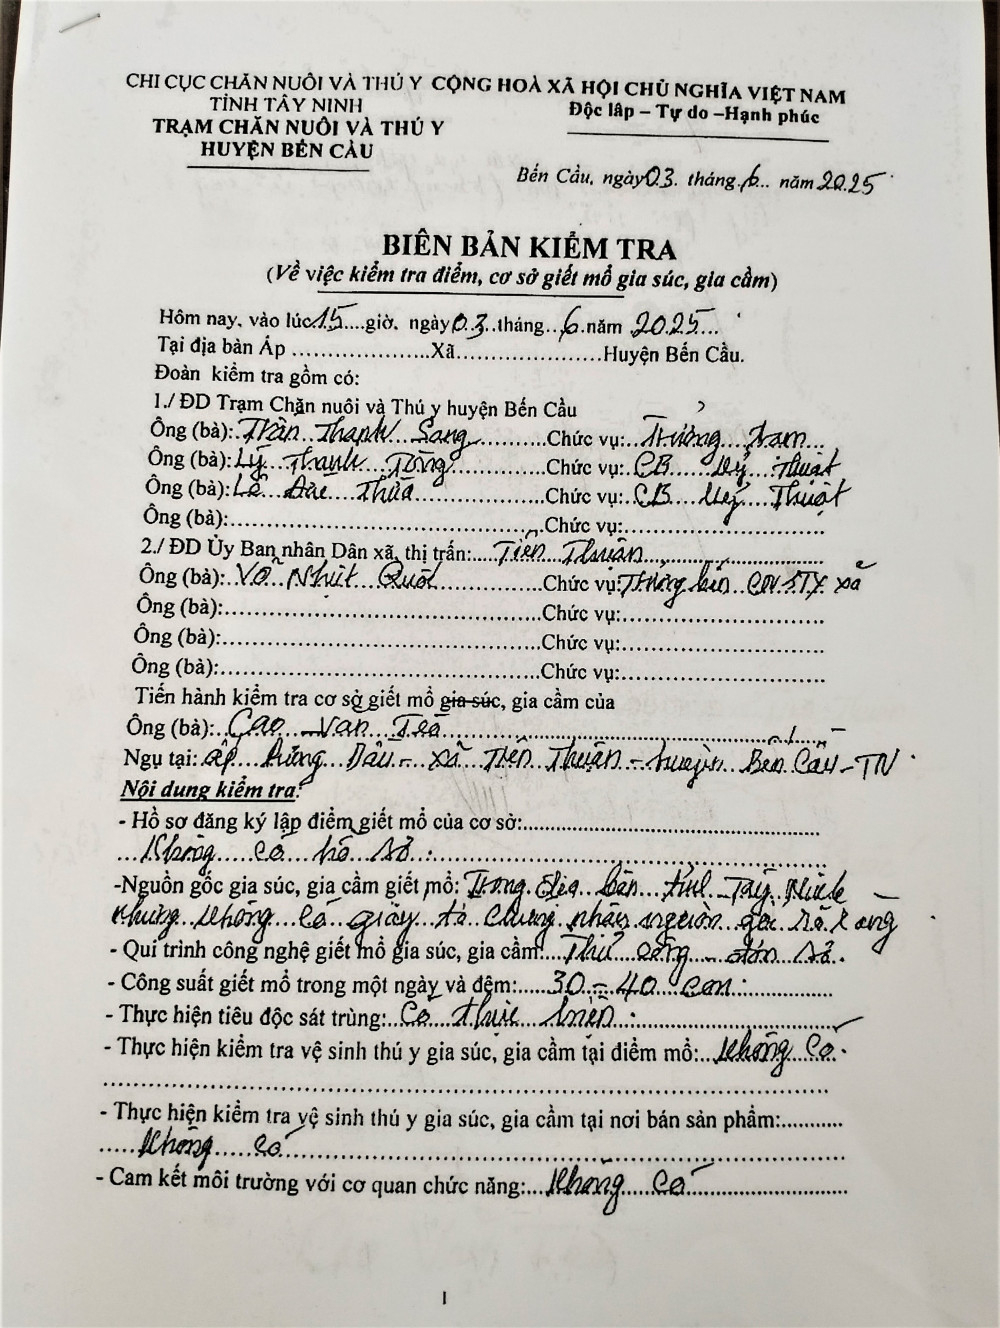 CHI CỤC CHĂN NUÔI VÀ THÚ Y CỘNG HOÀ XÃ HỘI CHỦ NGHĨA VIỆT NAM
TỈNH TÂY NINH Độc lâp – Tự do –Hạnh phúc
TRẠM CHĂN NUÔI VÀ THÚ Y
HUYỆN BẾN CẦU
Bến Cầu, ngày 03. tháng.6.. năm 2025
BIÊN BẢN KIỂM TRA
(Về việc kiểm tra điểm, cơ sở giết mổ gia súc, gia cầm)
Hôm nay, vào lúc 15....giờ, ngày 03..tháng...6.năm 2025...
Tại địa bàn Ấp ....................Xã........................Huyện Bến Cầu.
Đoàn kiểm tra gồm có:
1./ ĐD Trạm Chăn nuôi và Thú y huyện Bến Cầu
Ông (bà):.Trần...Thanh...Sang............Chức vụ:..Trưởng....trạm...
Ông (bà):Lý...Thanh...Tòng..............Chức vụ:..CB....kỹ..thuật
Ông (bà):Lê...Thừa......................Chức vụ:..CB...kỹ...Thuật
Ông (bà):................................................Chức vụ:..............................
2./ ĐD Ủy Ban nhân Dân xã, thị trấn:....Tiên...Thuận..............................
Ông (bà):.Võ..Nhựt...................Chức vụ: xã
Ông (bà):................................................Chức vụ:..............................
Ông (bà):................................................Chức vụ:..............................
Ông (bà):................................................Chức vụ:..............................
Tiến hành kiểm tra cơ sở giết mổ gia súc, gia cầm của
Ông (bà):..Cao...Văn...............................................................
Ngụ tại: ấp....Dầu – xã Tiên Thuận – huyện Bến Cầu – TN
Nội dung kiểm tra:
- Hồ sơ đăng ký lập điểm giết mổ của cơ sở:..................................................
...Không.....có...hồ...sơ.................................................................
-Nguồn gốc gia súc, gia cầm giết mổ: Trong địa bàn tỉnh Tây Ninh
nhưng không có giấy tờ chứng nhận nguồn gốc rõ ràng
- Qui trình công nghệ giết mổ gia súc, gia cầm:...Thủ công – đơn sơ.
- Công suất giết mổ trong một ngày và đêm:....30 – 40 con...............
- Thực hiện tiêu độc sát trùng: Có thực hiện..................................
- Thực hiện kiểm tra vệ sinh thú y gia súc, gia cầm tại điểm mổ:..không có.
................................................................................................
- Thực hiện kiểm tra vệ sinh thú y gia súc, gia cầm tại nơi bán sản phẩm:...........
.....Không....có...........................................................................
- Cam kết môi trường với cơ quan chức năng:...Không....có......................
1